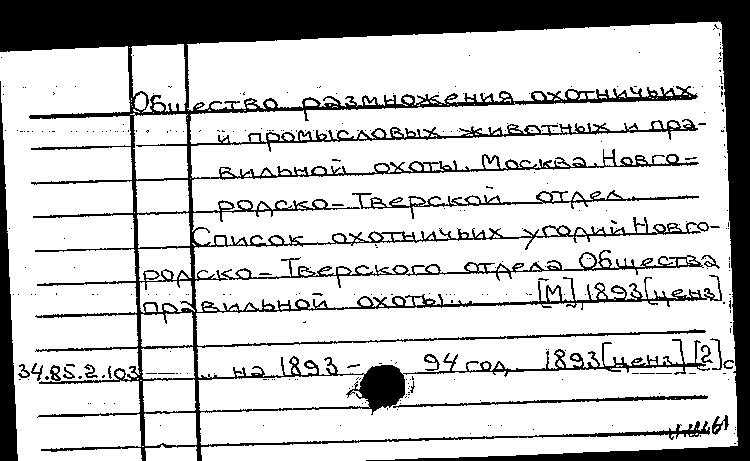 Общество размножения охотничьих
и промысловых животных и пра-
вильной охоты. Москва. Новго=
родско-Тверской отдел.
Список охотничьих угодий Новго-
родско-Тверского отдела Общества
правильной охоты... [М], 1893 [ценз]
34.85.2.103 ... на 1893 - 94 год. 1893 [ценз] [2] с